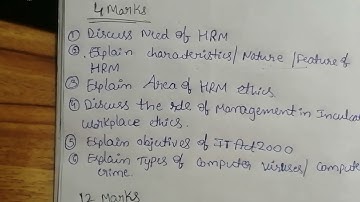 4 Marks
① Discuss Need of HRM
② Explain characteristics/Nature/Feature of
HRM
③ Explain Area of HRM ethics.
④ Discuss the role of Management in Inculca
workplace ethics.
⑤ Explain objectives of IT Act 2000
⑥ Explain Types of Computer viruses/ Compute
crime.
12 Marks